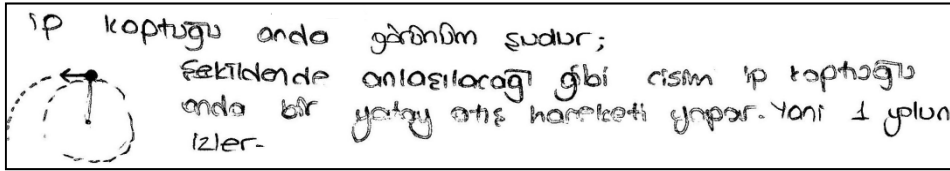 ip koptuğu anda görünüm şudur;
Şekildende anlaşılacağı gibi cisim ip koptuğu
anda bir yatay atış hareketi yapar. Yani 1 yolun
izler.